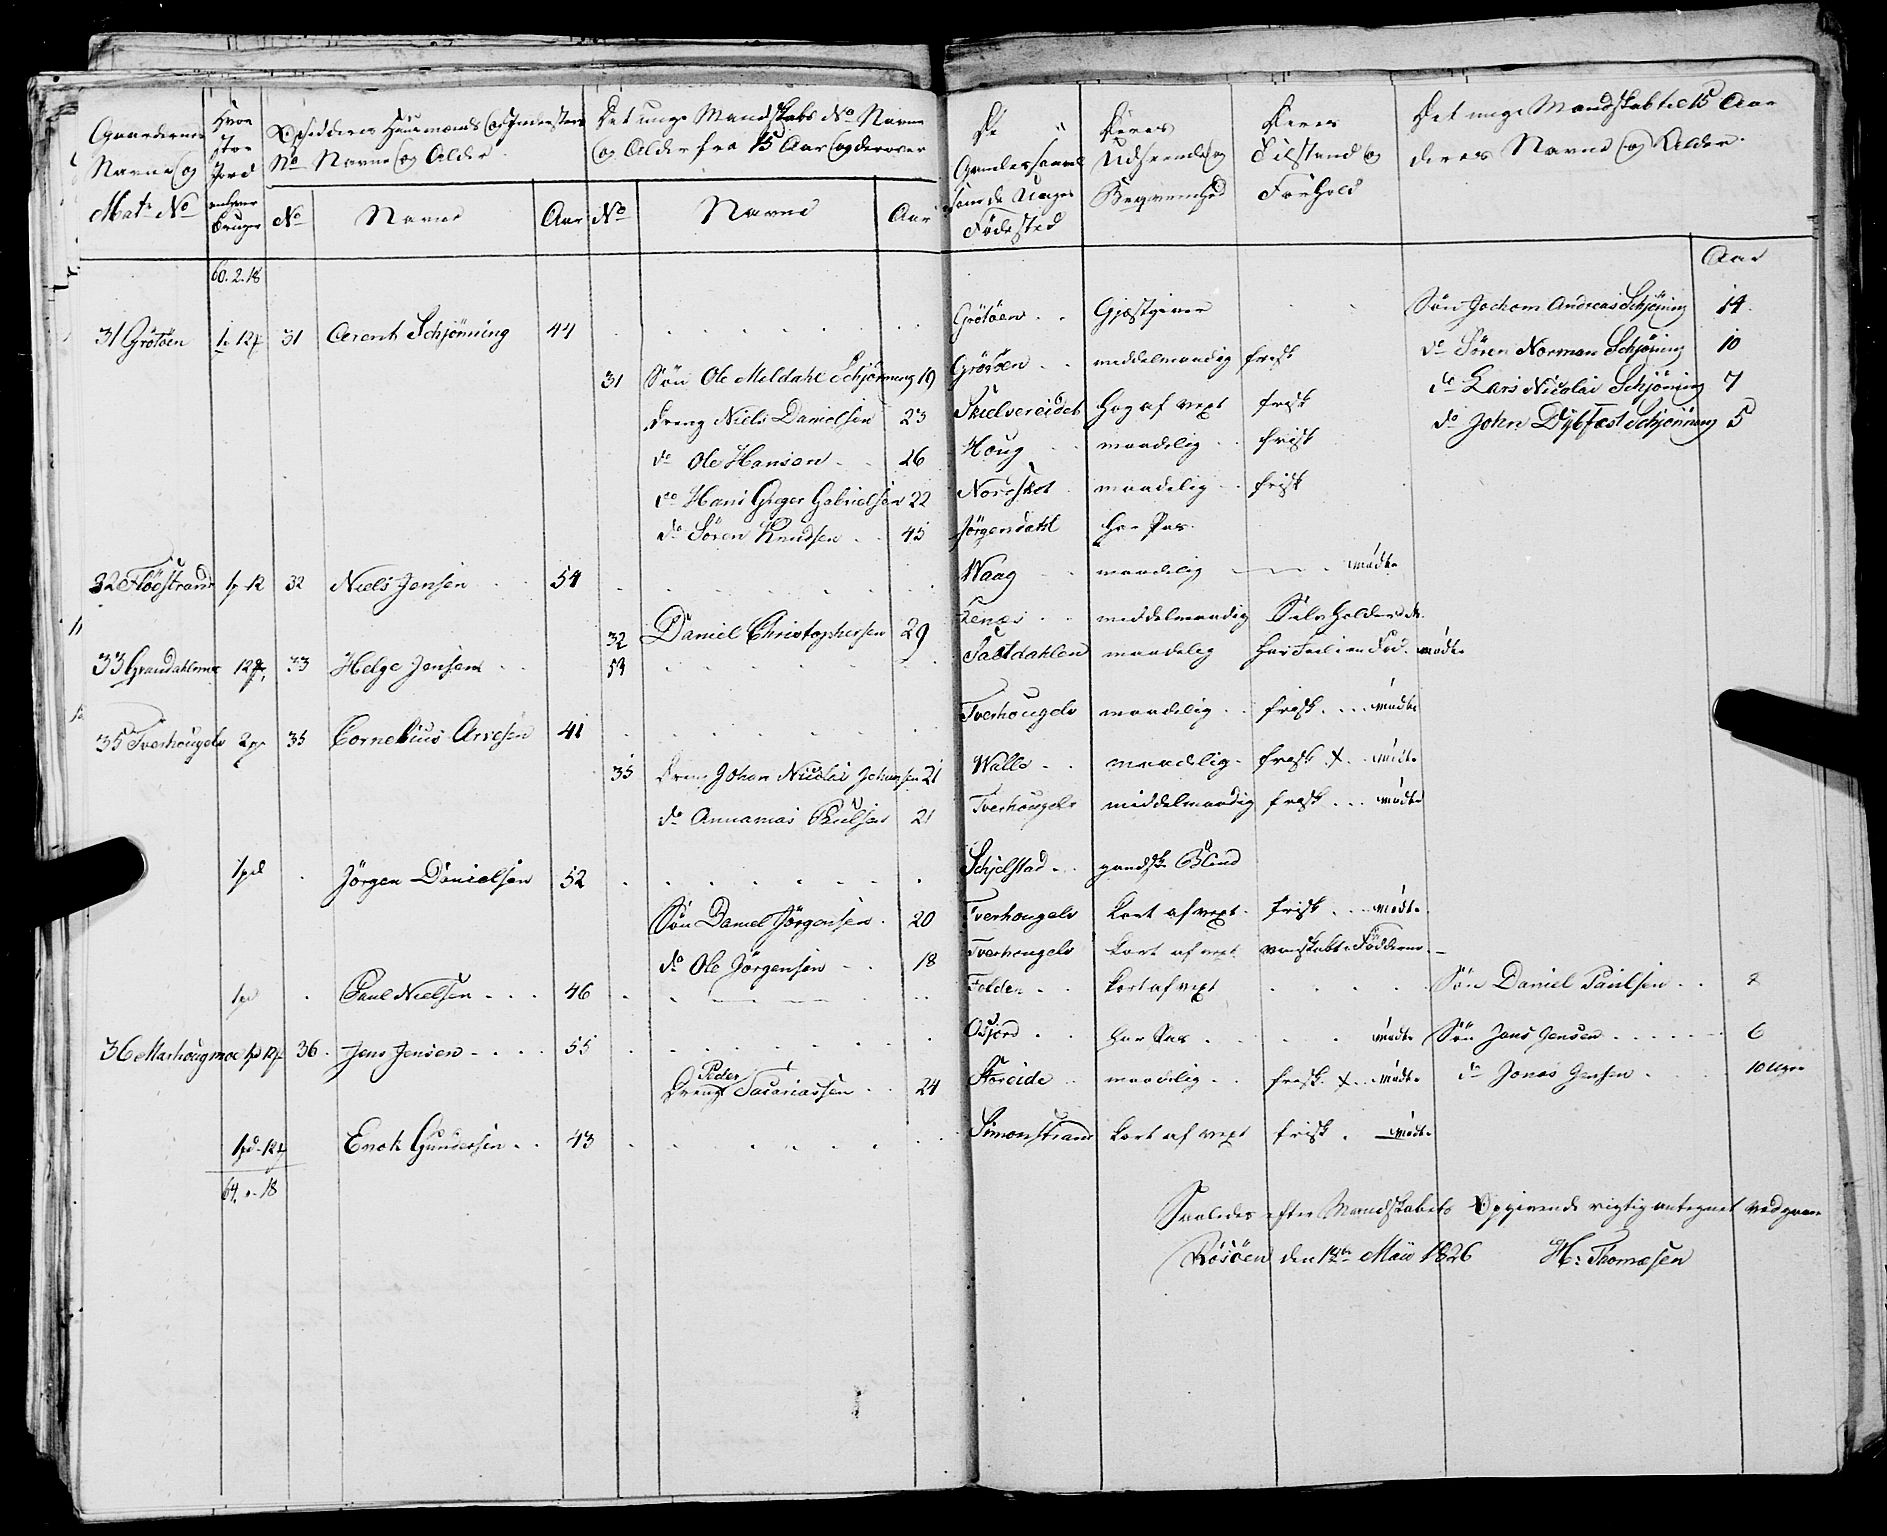 Gaardernes Navne og Mat: No
Hvor stor Jord enhver Bruger
Opsidderes Huusmænds og Indersters No Navne og Alder
Det unge Mandskabs No Navne og Alder fra 15 Aar og derover
De Gamles saavel som de Unges Fødested
Deres Udseende og Beqvemhed
Deres Tilstand og Forhold
Det unge Mandskab til 15 Aar deres Navne og Alder.
No Navne Aar No Navne Aar Aar
60. 2. 18
31 Grötöen 1 12 31 Arent Schjønning 44 Grötöen Gjæstgiver Søn Jochom Andreas Schjøning 14
31 Søn Ole Meldahl Schjønning 19 Grötöen middelmaadig frisk do Sören Norman Schjøning 10
Dreng Niels Danielsen 23 Skielvereidet høy af vext frisk do Lars Nicolai Schjøning 7
do Ole Hansen 26 Houg maadelig frisk do John Dybfest Schjønning 5
do Hans Greger Gabrielsen 22 Nordskot maadelig frisk
do Søren Knudsen 45 Jörgendahl har Pas.
32 Flöestrand 1 12 32 Niels Jensen 54 Waag maadelig mødte
32 Daniel Christophersen 29 Lenæs middelmaadig
33 Grandahlsmoe 12 33 Helge Jensen 53 Saltdahlen maadelig har Feil i en Fod. mødte
35 Tverhougelv 2 35 Cornelius Arvesen 41 Tverhougelv maadelig frisk mødte
35 Dreng Johan Nicolai Johansen 21 Walle maadelig frisk X mødte
do Annanias Paulsen 21 Tverhougelv middelmaadig frisk mødte
1 Jörgen Danielsen 52 Schjelstad gandske Blind
Søn Daniel Jörgensen 20 Tverhougelv kort af vext frisk mødte
do Ole Jörgensen 18 Tverhougelv kort af vext vanskabte Fødderne
1 Paul Nielsen 46 Folden kort af vext Søn Daniel Paulsen 2
36 Marhougmoe 1 12 36 Jens Jensen 55 har Pas mødte Søn Jens Jensen 6
Dreng Peder Sacariassen 24 Storeide maadelig frisk X mødte do Jonas Jensen 10 Uger
1 12 Enok Gundersen 43 Simonstrand kort af vext frisk mødte
64. 18
Saaledes efter Mandskabets Opgivende rigtig antegnet
Rösöen den 12te Maii 1826 H: Thomæsen